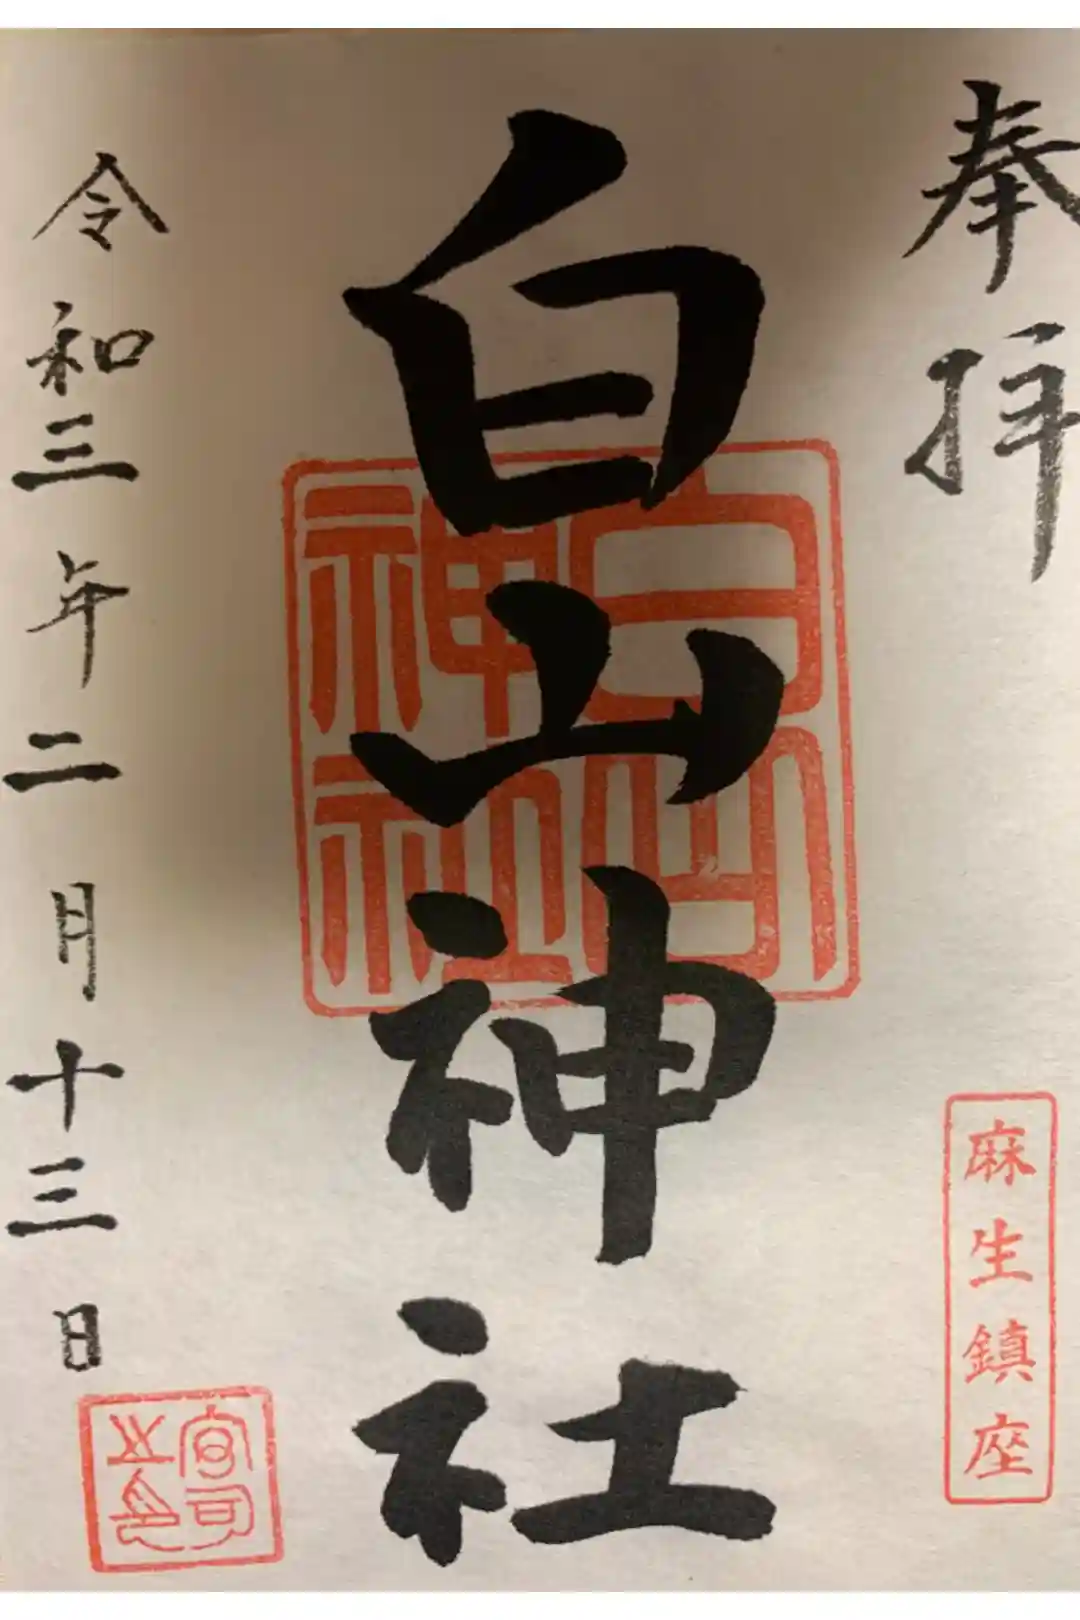 奉拝
麻生鎮座
白山神社
白山神社
令和三年二月十三日
宮司之印